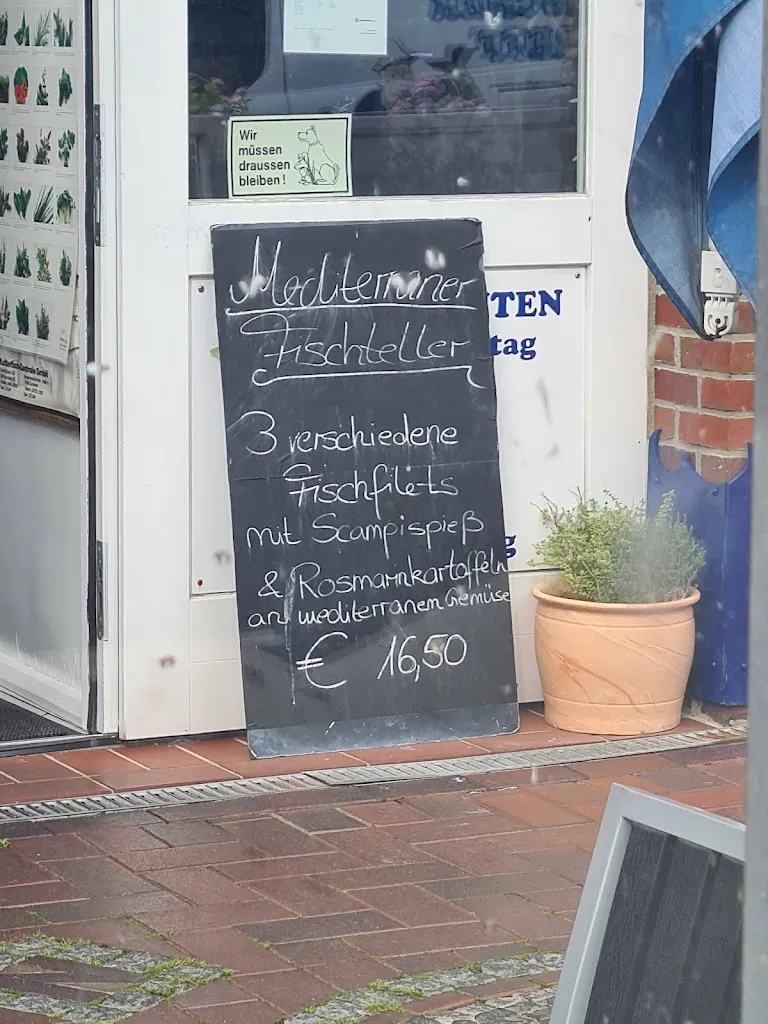 Wir
müssen
draussen
bleiben!
Mediterraner
Fischteller
3 verschiedene
Fischfilets
mit Scampispieß
& Rosmarinkartoffeln
an mediterranem Gemüse
€ 16,50
TEN
tag
g